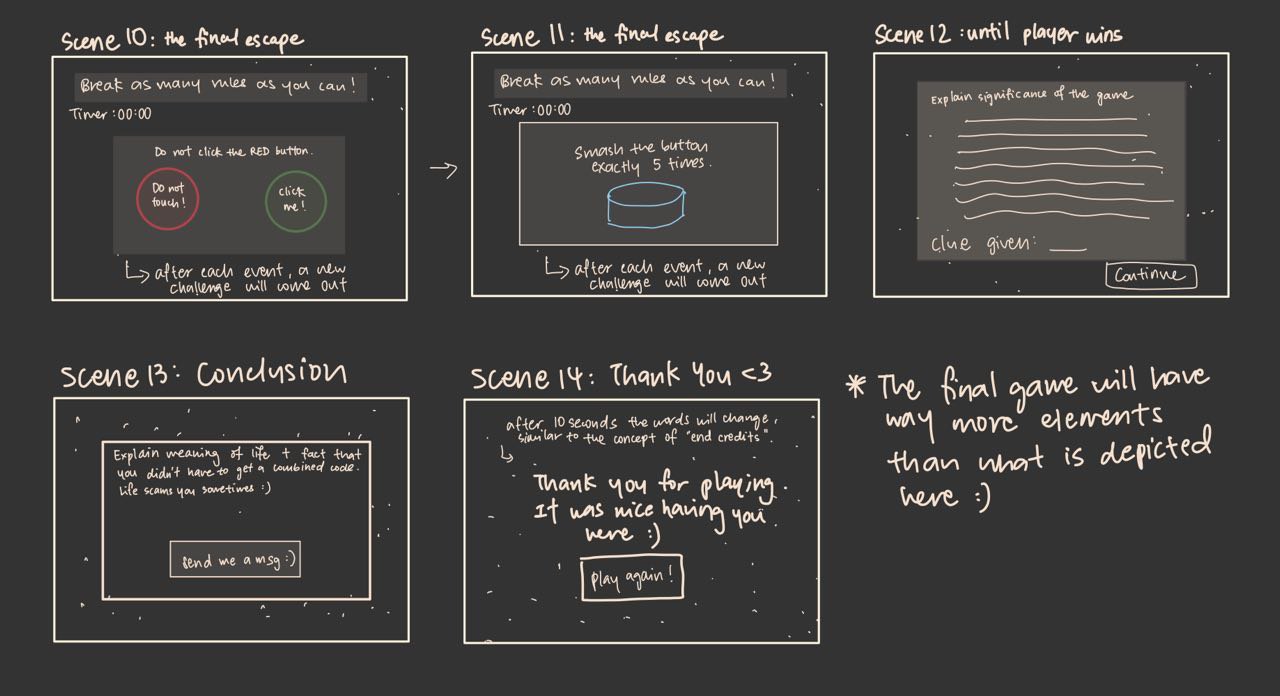 Scene 10: the final escape
Break as many rules as you can!
Timer :00:00
Do not click the RED button.
Do not
touch!
click
me!
after each event, a new
challenge will come out
Scene 11: the final escape
Break as many rules as you can!
Timer :00:00
Smash the button
exactly 5 times.
after each event, a new
challenge will come out
Scene 12: until player wins
Explain significance of the game
Clue given: ___
Continue
Scene 13: Conclusion
Explain meaning of life + fact that
you didn't have to get a combined code.
Life scams you sometimes :)
send me a msg :)
Scene 14: Thank You <3
after 10 seconds the words will change,
similar to the concept of "end credits".
Thank you for playing.
It was nice having you
here :)
play again!
* The final game will have
way more elements
than what is depicted
here :)